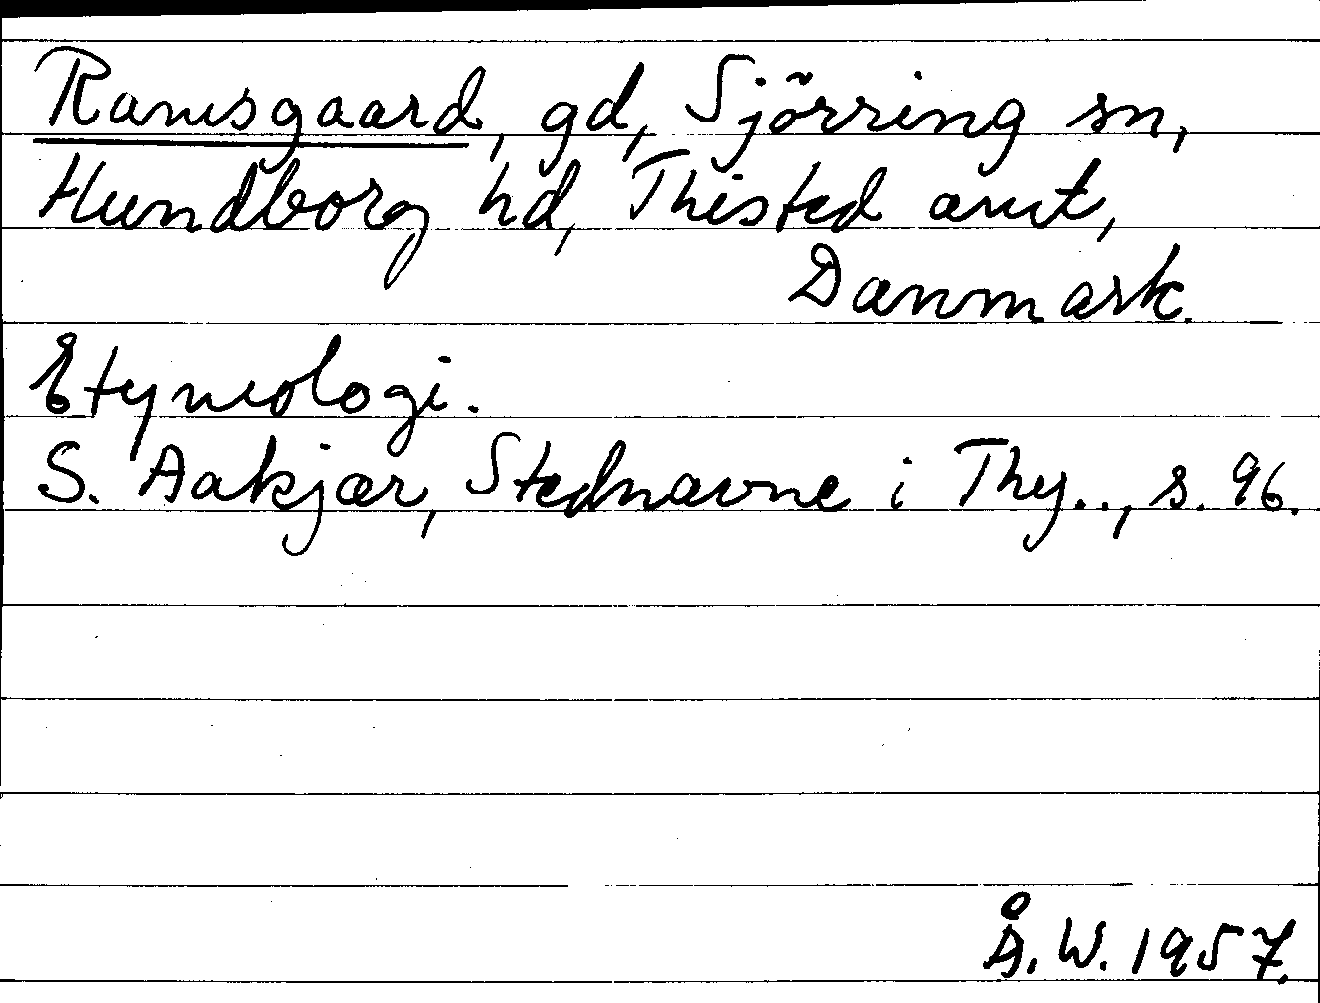 Ramsgaard, gd, Sjörring sn,
Hundborg hd, Thisted amt,
Danmark.
Etymologi.
S. Aakjær, Stednavne i Thy.., s. 96.
Å. W. 1957.